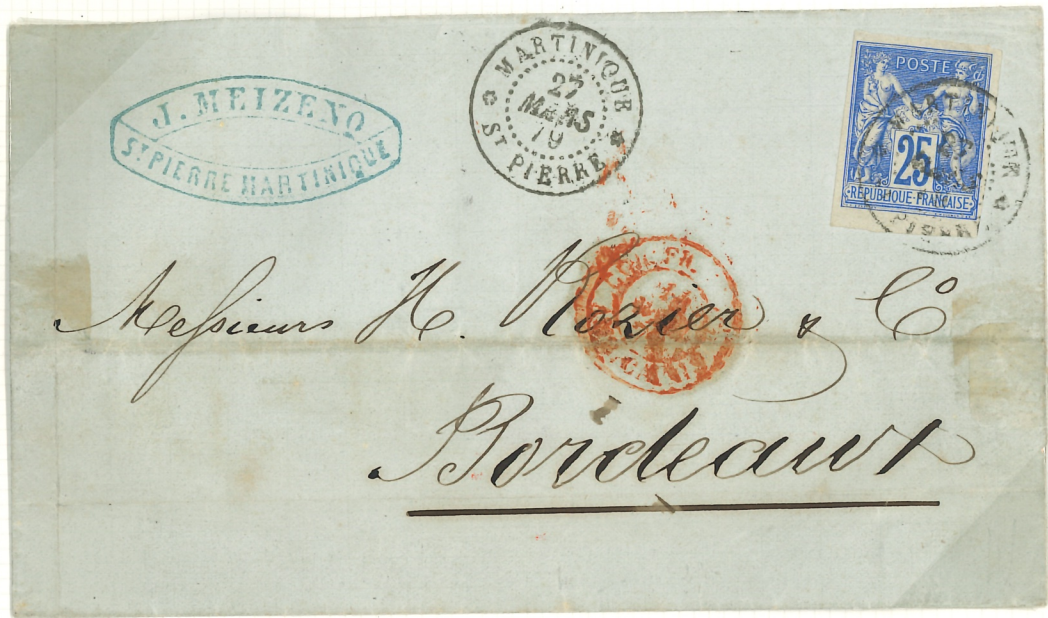 J. MEIZENQ
ST PIERRE MARTINIQUE
MARTINIQUE
27
MARS
79
ST PIERRE
POSTE
25
REPUBLIQUE FRANÇAISE
FR.
Messieurs H. Rozier & Co
Bordeaux